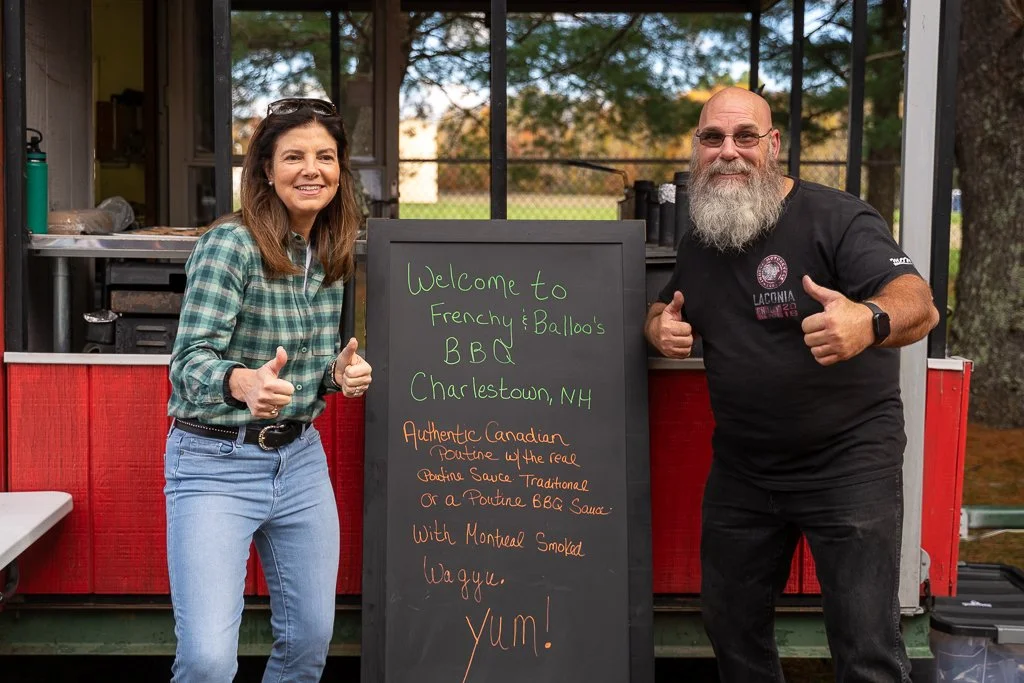 Welcome to
Frenchy & Balloo's
BBQ
Charlestown, NH
Authentic Canadian
Poutine w/the real
Poutine Sauce Traditional
Or a Poutine BBQ Sauce.
With Montreal Smoked
Wagyu.
Yum!
LACONIA
2018